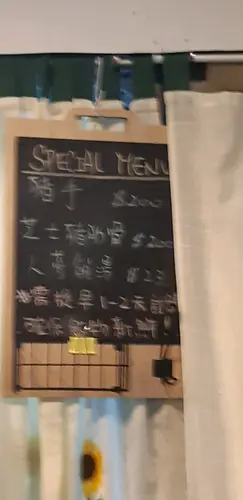 SPECIAL MENU
豬手 $200
芝士豬助骨 $200
人蔘雞湯 $23
※需提早1-2天前
確保食物新鮮!